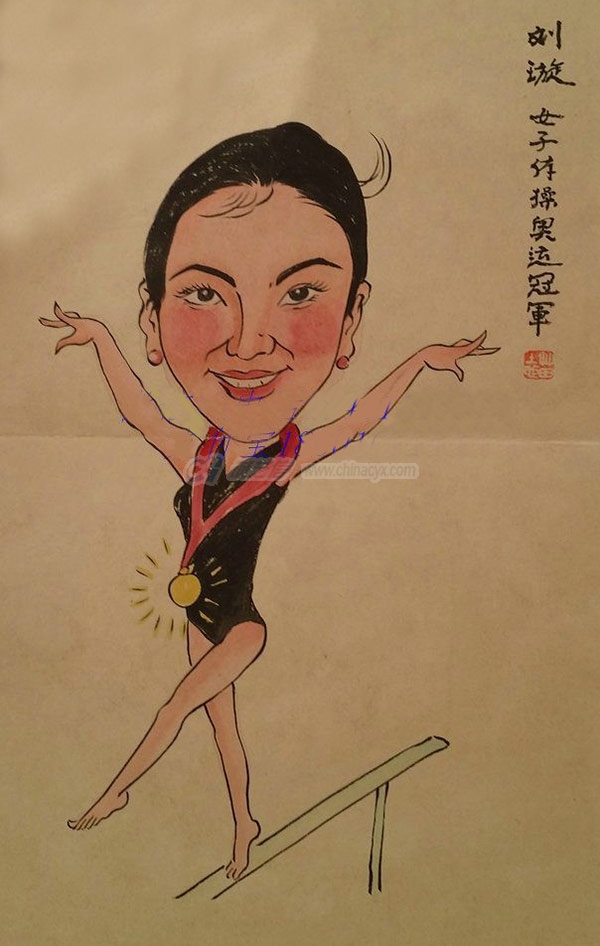 刘璇 女子体操奥运冠軍
www.chinacyx.com